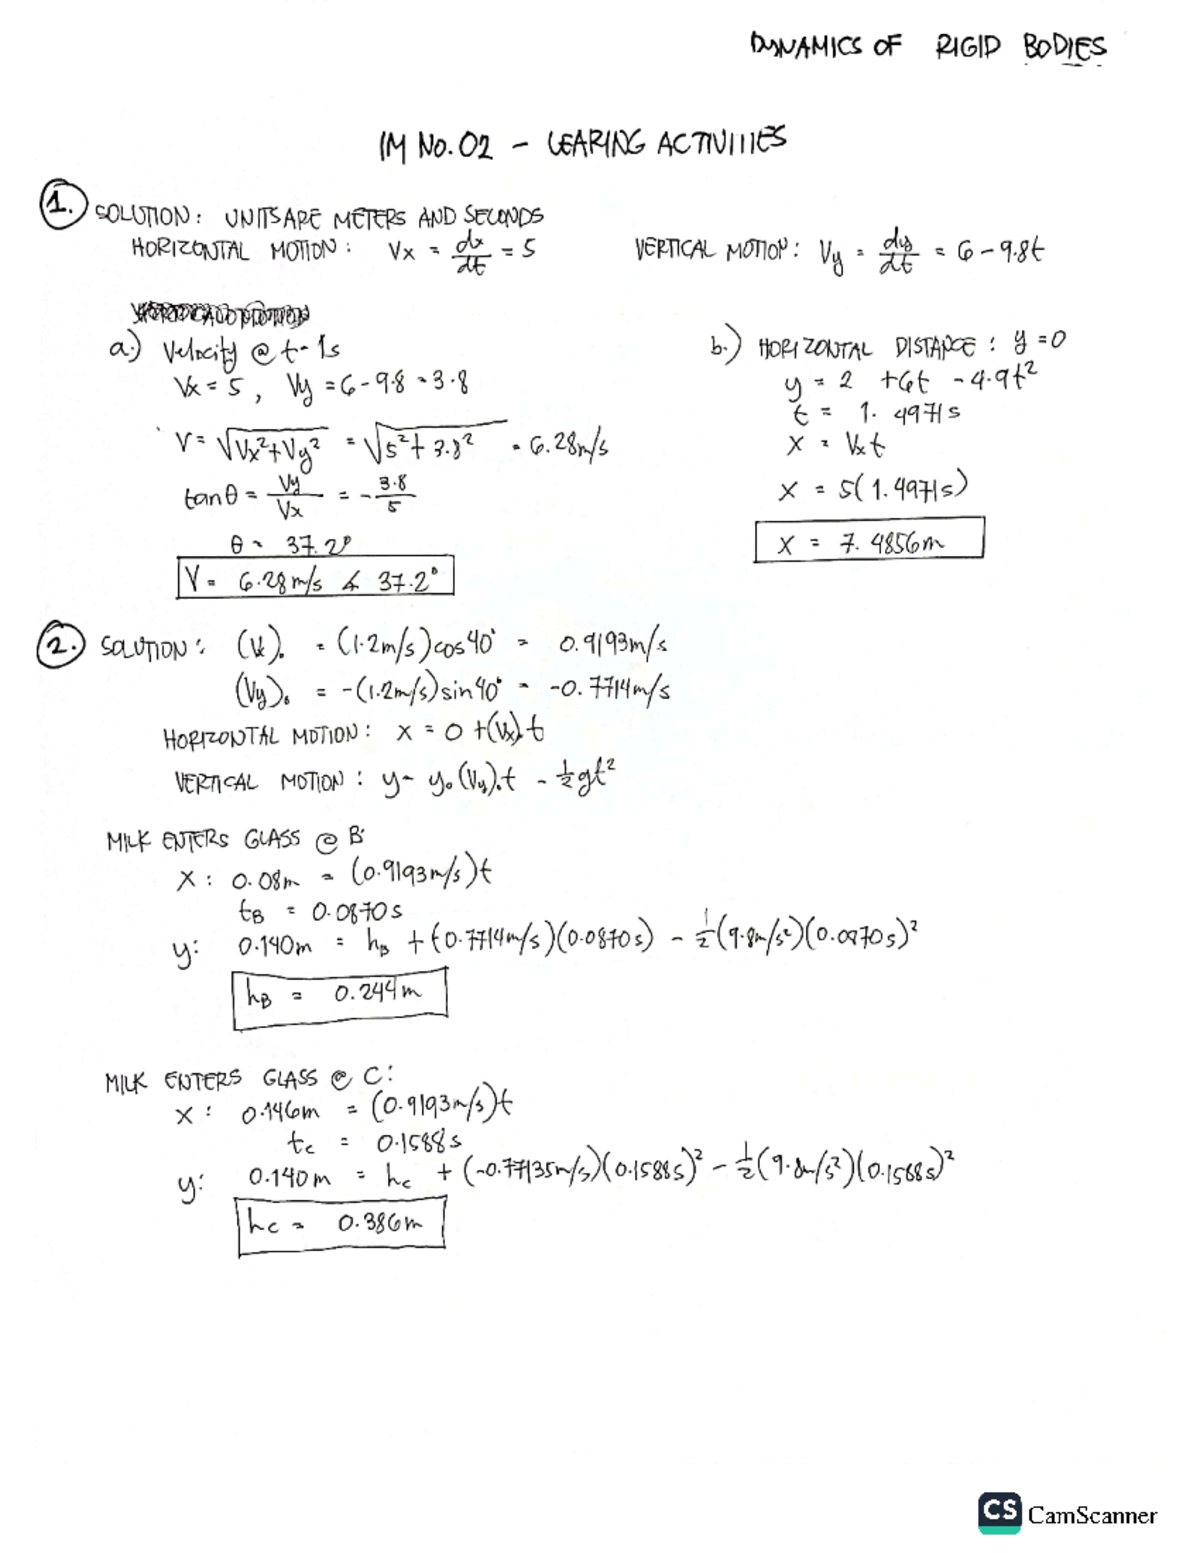 DYNAMICS OF RIGID BODIES
IM No. 02 - LEARING ACTIVITIES
1. SOLUTION: UNITS ARE METERS AND SECONDS
HORIZONTAL MOTION: Vx = dx/dt = 5
VERTICAL MOTION: Vy = dy/dt = 6 - 9.8t
a.) Velocity @ t - 1s
Vx = 5, Vy = 6 - 9.8 - 3.8
V = √Vx²+Vy² = √5²+3.8² = 6.28m/s
tanθ = Vy/Vx = -3.8/5
θ = 37.2°
V = 6.28m/s ∡ 37.2°
b.) HORIZONTAL DISTANCE: y = 0
y = 2 + 6t - 4.9t²
t = 1.4971s
x = Vxt
x = 5(1.4971s)
x = 7.4856m
2. SOLUTION: (Vx)₀ = (1.2m/s)cos40° = 0.9193m/s
(Vy)₀ = -(1.2m/s)sin40° = -0.7714m/s
HORIZONTAL MOTION: x = 0 + (Vx)₀t
VERTICAL MOTION: y - y₀(Vy)₀t - ½gt²
MILK ENTERS GLASS @ B:
x: 0.08m = (0.9193m/s)t
tB = 0.0870s
y: 0.140m = hB + (-0.7714m/s)(0.0870s) - ½(9.8m/s²)(0.0870s)²
hB = 0.244m
MILK ENTERS GLASS @ C:
x: 0.146m = (0.9193m/s)t
tc = 0.1588s
y: 0.140m = hc + (-0.77135m/s)(0.1588s)² - ½(9.8m/s²)(0.1588s)²
hc = 0.386m
CS CamScanner